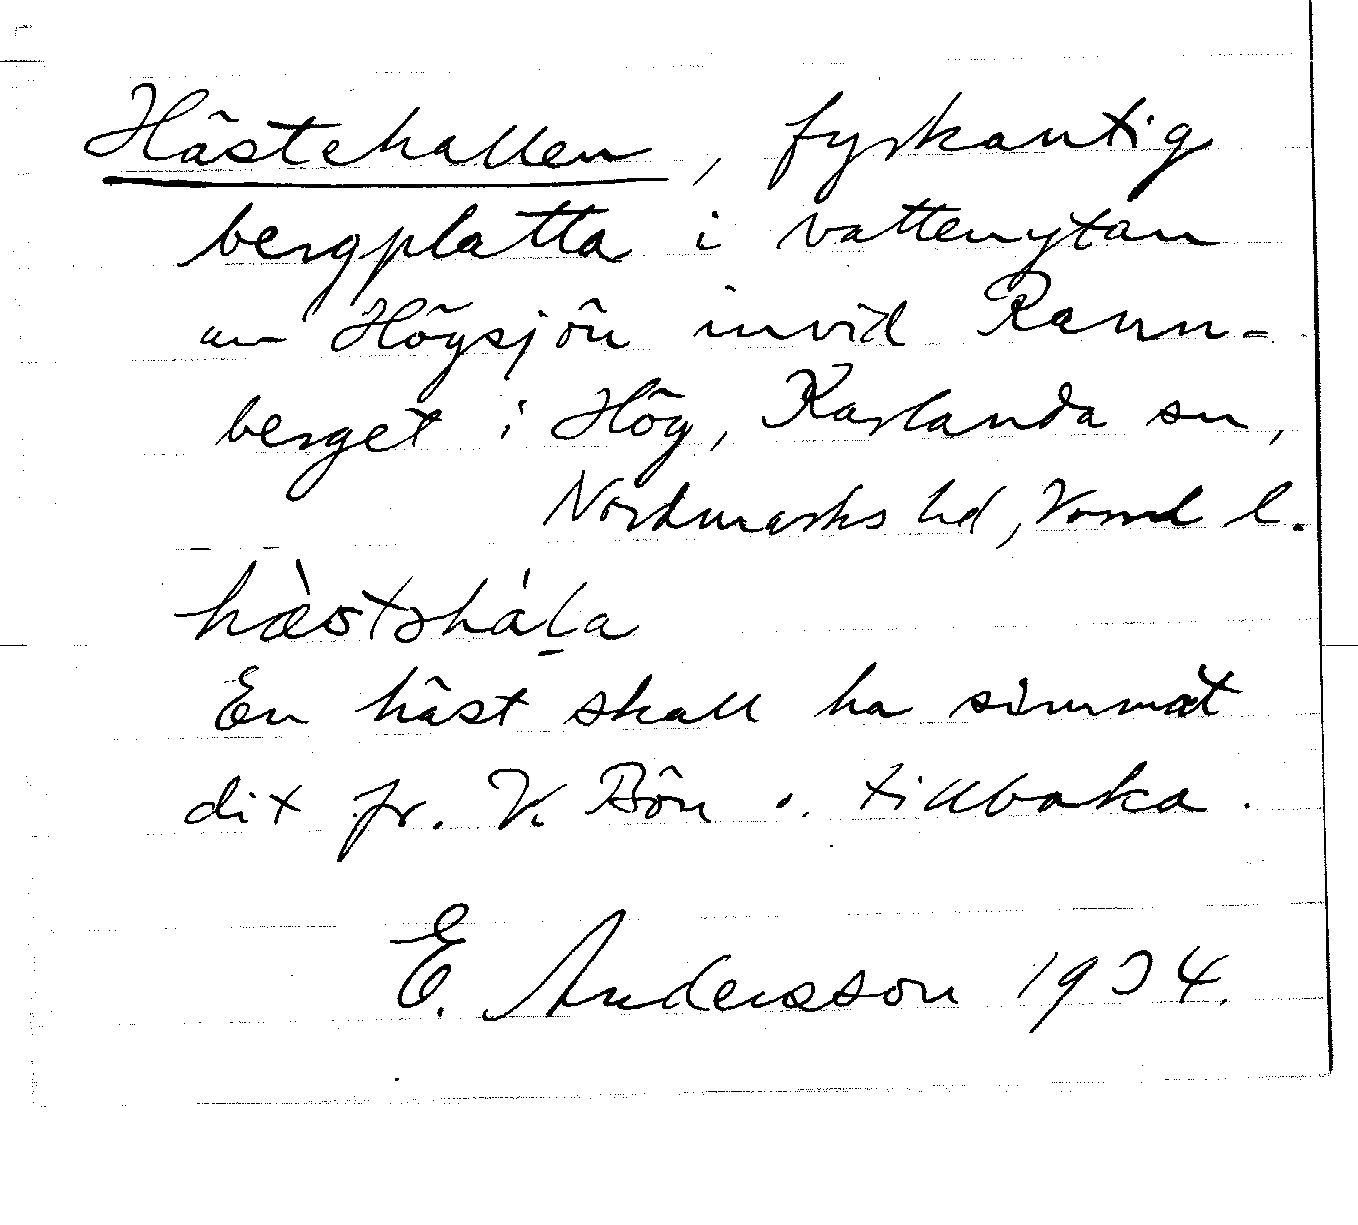 Hästehallen, fyrkantig
bergplatta i vattenytan
av Högsjön invid Rann-
berget i Hög, Karlanda sn,
Nordmarks hd, Värml l.
hæ̀stəháḷa
En häst skall ha simmat
dit fr. V. Bön o. tillbaka.
E. Andersson 1934.